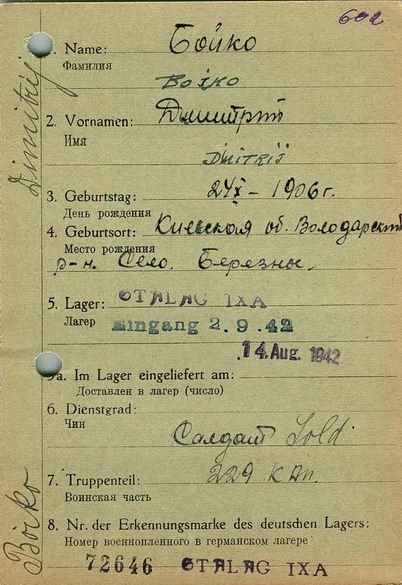 602
1. Name: Бойко
Фамилия
Boiko
2. Vornamen: Дмитрий
Имя
Dmitrij
3. Geburtstag: 24/X – 1906 г.
День рождения
4. Geburtsort: Киевская об. Володарский
Место рождения
р-н. Село. Березные.
5. Lager: STALAG IXA
Лагер Eingang 2.9.42
14. Aug. 1942
5a. Im Lager eingeliefert am:
Доставлен в лагер (число)
6. Dienstgrad:
Чин
Салдат Sold.
7. Truppenteil: 229 К
Воинская часть
8. Nr. der Erkennungsmarke des deutschen Lagers:
Номер военнопленного в германском лагере
72646 STALAG IXA
Dimitrij
Boiko